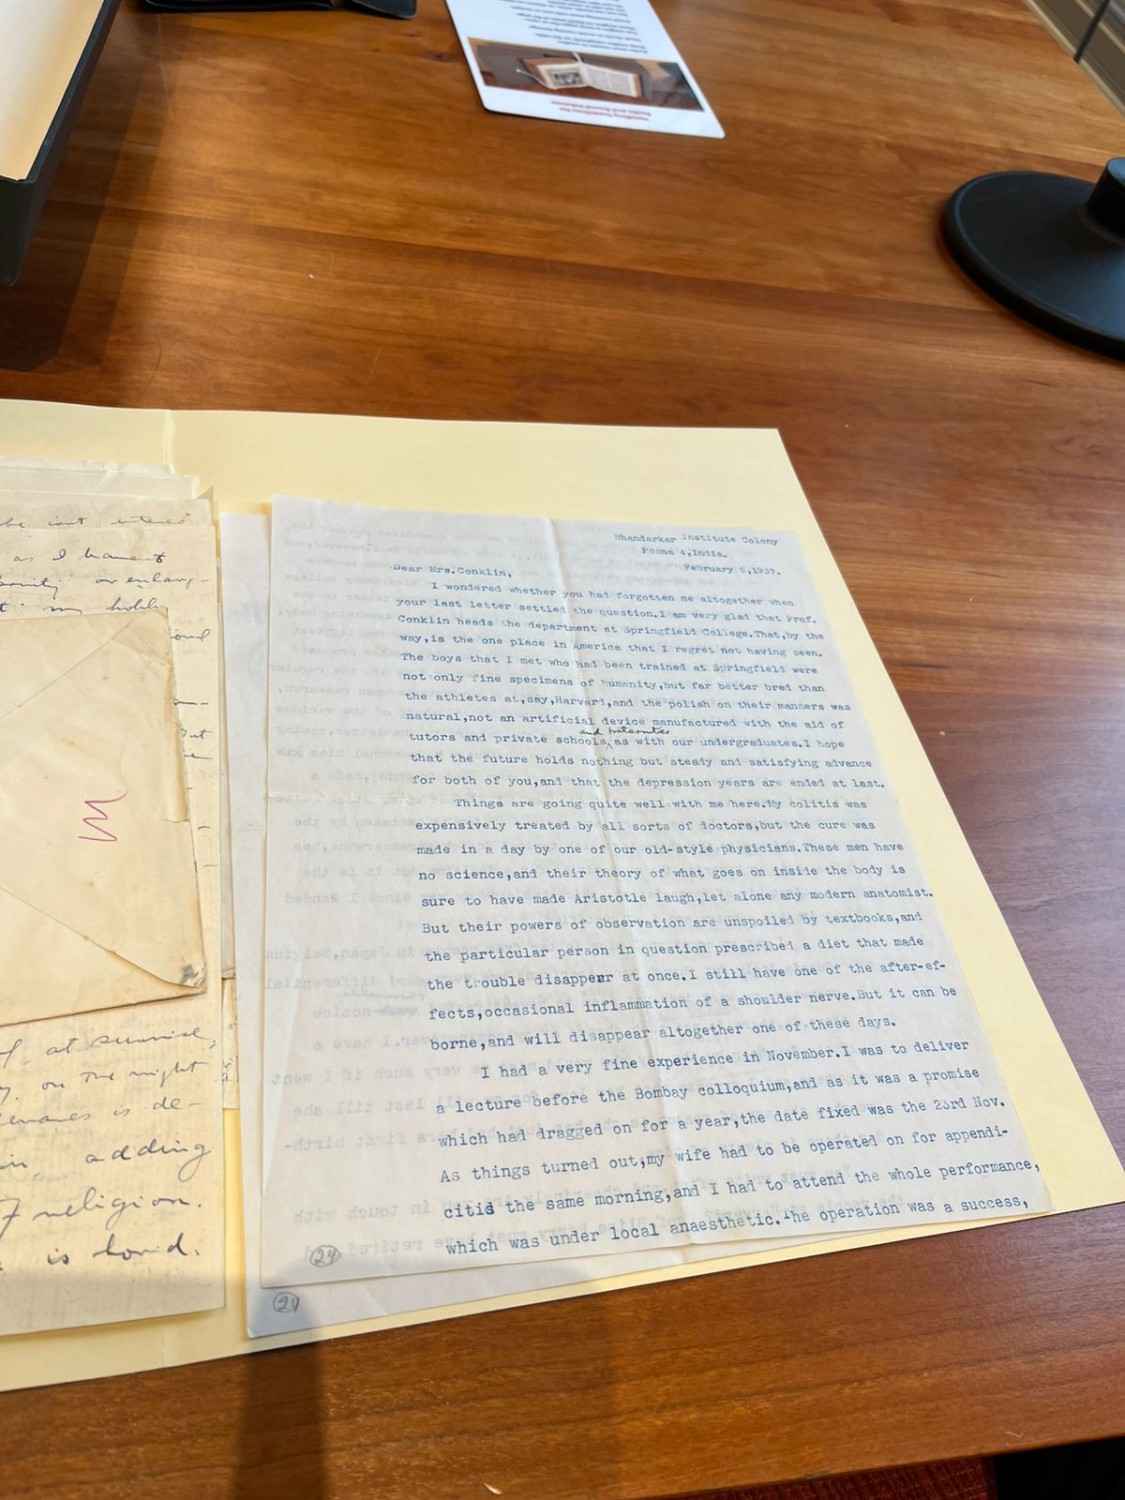 Handling Guidelines for
Books and Bound Volumes
Bhandarkar Institute Colony
Poona 4,India.
February 5,1937.
Dear Mrs.Conklin,
I wondered whether you had forgotten me altogether when
your last letter settled the question.I am very glad that Prof.
Conklin heads the department at Springfield College.That,by the
way,is the one place in America that I regret not having seen.
The boys that I met who had been trained at Springfield were
not only fine specimens of humanity,but far better bred than
the athletes at,say,Harvard,and the polish on their manners was
natural,not an artificial device manufactured with the aid of
and fraternities
tutors and private schools,as with our undergraduates.I hope
that the future holds nothing but steady and satisfying advance
for both of you,and that the depression years are ended at last.
Things are going quite well with me here.My colitis was
expensively treated by all sorts of doctors,but the cure was
made in a day by one of our old-style physicians.These men have
no science,and their theory of what goes on inside the body is
sure to have made Aristotle laugh,let alone any modern anatomist.
But their powers of observation are unspoiled by textbooks,and
the particular person in question prescribed a diet that made
the trouble disappear at once.I still have one of the after-ef-
fects,occasional inflammation of a shoulder nerve.But it can be
borne,and will disappear altogether one of these days.
I had a very fine experience in November.I was to deliver
a lecture before the Bombay colloquium,and as it was a promise
which had dragged on for a year,the date fixed was the 23rd Nov.
As things turned out,my wife had to be operated on for appendi-
citis the same morning,and I had to attend the whole performance,
which was under local anaesthetic.The operation was a success,
24
24
as I haven't
or enlarg-
my hobby
at sunrise,
on the night
is de-
adding
religion.
is bond.